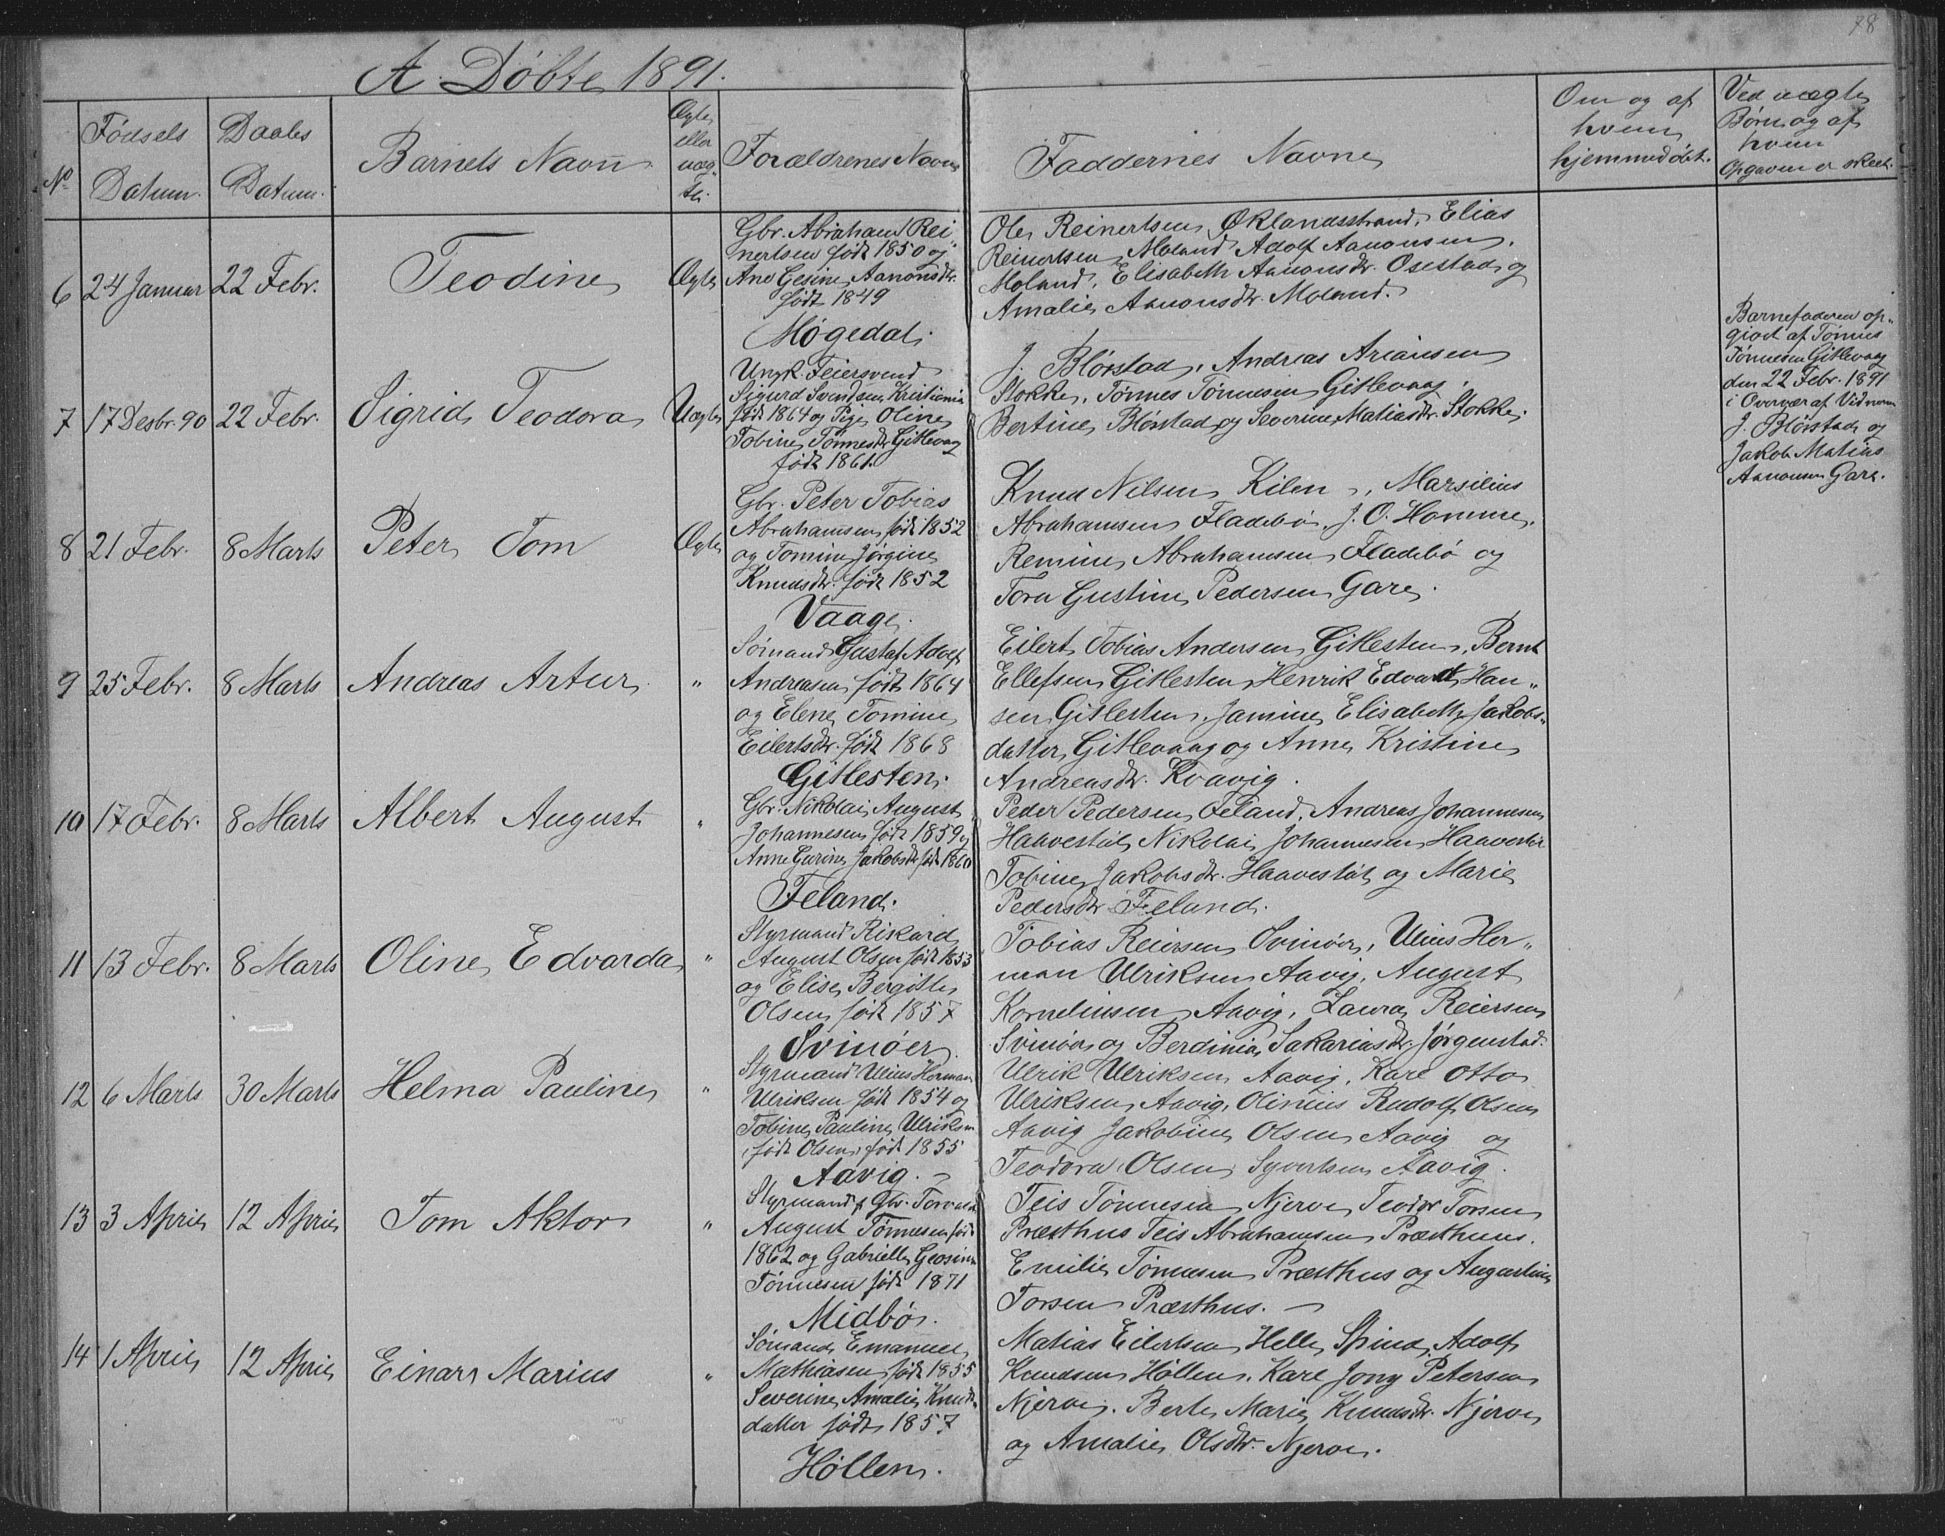 78
A. Døbte 1891.
No
Fødsels Datum.
Daabs Datum.
Barnets Navn
Ægte eller uæg- te.
Forældrenes Navne
Faddernes Navne
Om og af hvem hjemmedøbt.
Ved uægte Børn og af hvem Opgaven er skeet.
6
24 Januar
22 Febr.
Teodine
Ægte
Gbr. Abraham Rei
nertsen født 1850 og
Ane Gesine Aanonsdtr.
født 1849
Møgedal.
Ole Reinertsen Øklandsstrand, Elias
Reinertsen Moland Adolf Aanonsen
Moland, Elisabeth Aanonsdtr. Osestad og
Amalie Aanonsdtr. Moland.
7
17 Desbr. 90
22 Febr.
Sigrid Teodora
Uægte
Ungk. Feiersvend
Sigurd Svendsen Kristiania
født 1864 og Pige Oline
Tobine Tønnesdtr. Gitlevaag
født 1861.
J. Blørstad, Andreas Ariansen
Stokke, Tønnes Tønnesen Gitlevaag,
Bertine Blørstad og Severine Matiasdtr. Stokke.
Barnefaderen op-
givet af Tønnes
Tønnesen Gitlevaag
den 22 Febr. 1891
i Overvær af Vidnerne
J. Blørstad og
Jakob Matias
Aanonsen Gare.
8
21 Febr.
8 Marts
Peter Tom
Ægte
Gbr. Peter Tobias
Abrahamsen født 1852
og Tomine Jørgine
Knudsdtr. født 1852
Vaage.
Knud Nilsen Kilen, Marsilius
Abrahamsen Fladebø, J. O. Homme,
Remine Abrahamsen Fladebø og
Tora Gustine Pedersen Gare.
9
25 Febr.
8 Marts
Andreas Artur
"
Sømand Gustaf Adolf
Andreasen født 1864
og Elene Tomine
Eilertsdtr. født 1868
Gitlesten.
Eilert Tobias Andersen Gitlesten, Bernt
Ellefsen Gitlesten Henrik Edvardt Han-
sen Gitlesten, Jamine Elisabeth Jakobs-
datter Gitlevaag og Anne Kristine
Andreasdtr. Kvavig.
10
17 Febr.
8 Marts
Albert August
"
Gbr. Nikolai August
Johannesen født 1859 og
Anne Gurine Jakobsdtr. født 1860
Feland.
Peder Pedersen Feland, Andreas Johannesen
Haavestøl Nikolai Johannesen Haavestøl
Tobine Jakobsdtr. Haavestøl og Marie
Pedersdtr. Feland.
11
13 Febr.
8 Marts
Oline Edvarda
"
Styrmand Rikard
August Olsen født 1853
og Elise Bergitte
Olsen født 1857
Svinøer.
Tobias Reiersen Svinøer, Ulius Her-
man Ulriksen Aavig, August
Korneliusen Aavig, Laura Reiersen
Svinøer og Berdinia Sakariasdtr. Jørgenstad.
12
6 Marts
30 Marts
Helma Pauline
"
Styrmand Ulius Herman
Ulriksen født 1854 og
Tobine Pauline Ulriksen
født Olsen født 1855
Aavig.
Ulrik Ulriksen Aavig, Karl Otto
Ulriksen Aavig, Olinius Rudolf Olsen
Aavig Jakobine Olsen Aavig og
Teodora Olsen Syvertsen Aavig.
13
3 April
12 April
Tom Aktor
"
Styrmand & Gbr. Torvald
August Tønnesen født
1862 og Gabrielle Geosine
Tønnesen født 1871
Midbø.
Teis Tønnesen Njerve Teodor Torsen
Præsthus Teis Abrahamsen Præsthuus.
Emilie Tønnesen Præsthus og Augustine
Torsen Præsthus.
14
1 April
12 April
Einar Marius
"
Sømand Emanuel
Mathiasen født 1855
Severine Amalie Knuds-
datter født 1857
Høllen.
Matias Eilertsen Helle Spind, Adolf
Knudsen Høllen, Karl Jong Petersen
Njerve. Berte Marie Knudsdtr. Njerve
og Amalie Olsdtr. Njerve.